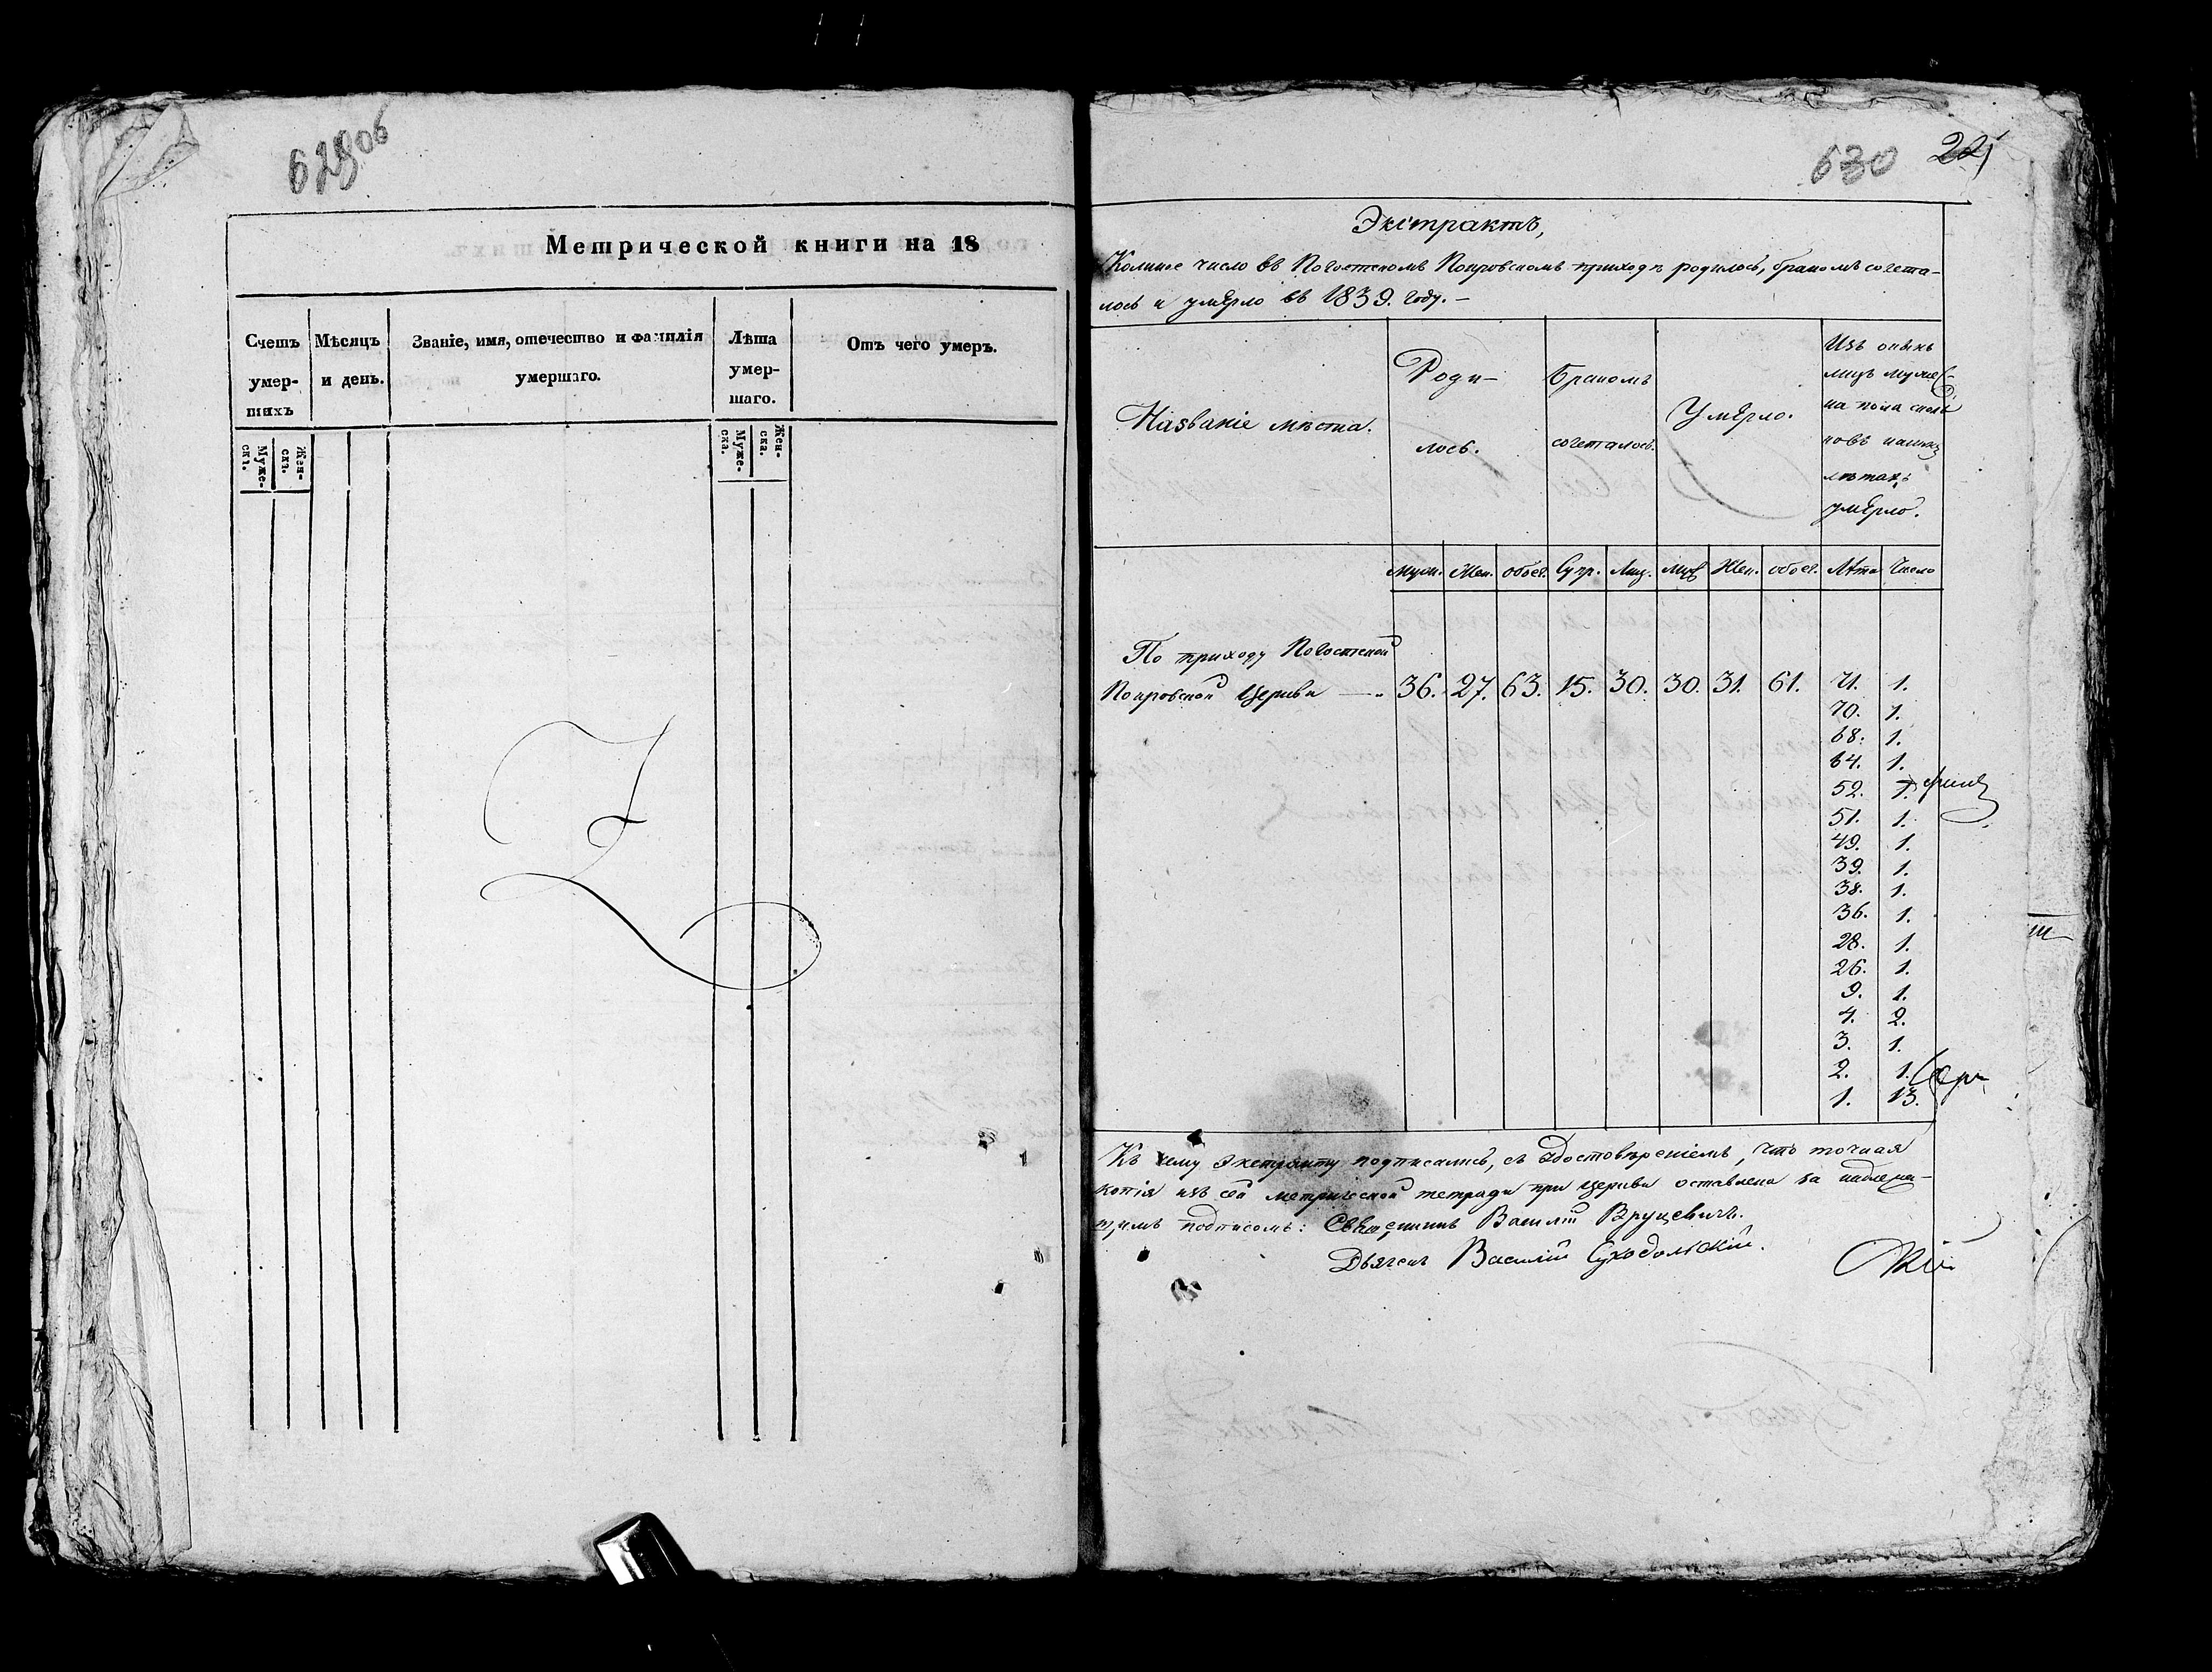 629об
Метрической книги на 18
Счетъ умер-шихъ
Мѣсяцъ и день.
Званіе, имя, отечество и фамилія умершаго.
Лѣта умер-шаго.
Отъ чего умеръ.
Муже-скъ.
Жен-скъ.
Муже-ска.
Жен-ска.
630
Экстрактъ,
Коликое число въ Погостскомъ Покровскомъ приходѣ родилось, бракомъ сочета-
лось и умерло въ 1839. году. –
Названіе мѣста.
Роди-
лось.
Бракомъ
сочеталось.
Умерло.
Изъ оныхъ
лицъ мужес-
ка пола
лѣтахъ
умерло.
муж. Жен. обоег. Супр. Лиц. муж Жен. обоег. Лѣта Число
По приходу Погостской
Покровской Церкви 36. 27. 63. 15. 30. 30. 31. 61. 71. 1.
70. 1.
68. 1.
64. 1.
52. 1.
51. 1.
49. 1.
39. 1.
38. 1.
36. 1.
28. 1.
26. 1.
9. 1.
4. 2.
3. 1.
2. 1.
1. 13.
Къ сему Экстракту подписались, съ удостовѣреніемъ, что точная
копія изъ сей метрической тетради при Церкви оставлена за надлежа-
щимъ подписомъ: Священникъ Василій Вруцевичъ.
Дьячекъ Василій Суходольскій.